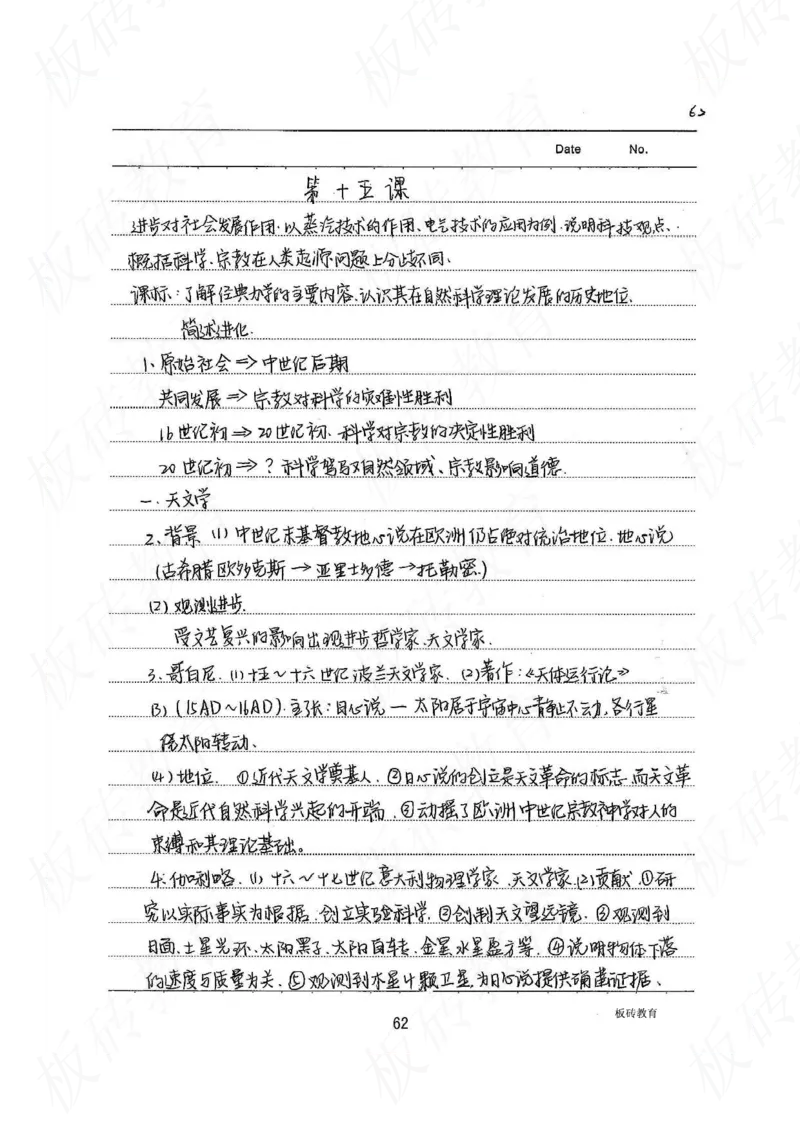 62
Date No.
第十五课
进步对社会发展作用.以蒸汽技术的作用、电气技术的应用为例.说明科技观点、
概括科学、宗教在人类起源问题上分歧不同、
课标:了解经典力学的主要内容.认识其在自然科学理论发展的历史地位.
简述进化.
1、原始社会⇒中世纪后期
共同发展⇒宗教对科学的灾难性胜利
16世纪初⇒20世纪初、科学对宗教的决定性胜利
20世纪初⇒?科学驾驭自然领域、宗教影响道德.
一.天文学
2、背景 (1)中世纪末基督教地心说在欧洲仍占绝对统治地位.地心说
(古希腊欧多克斯→亚里士多德→托勒密.)
(2)观测进步.
受文艺复兴的影响出现进步哲学家、天文学家.
3、哥白尼、(1)十五~十六世纪波兰天文学家、(2)著作:《天体运行论》
(3)(15AD~16AD).主张:日心说 — 太阳居于宇宙中心静止不动,各行星
绕太阳转动、
(4)地位、①近代天文学奠基人.②日心说的创立是天文革命的标志.而天文革
命是近代自然科学兴起的开端.③动摇了欧洲中世纪宗教神学对人的
束缚和其理论基础。
4.伽利略、(1)十六~十七世纪意大利物理学家、天文学家.(2)贡献.①研
究以实际事实为根据、创立实验科学.②创制天文望远镜.③观测到
月面、土星光环、太阳黑子、太阳自转、金星水星盈亏等.④说明物体下落
的速度与质量无关.⑤观测到木星4颗卫星,为日心说提供确凿证据、
板砖教育
62